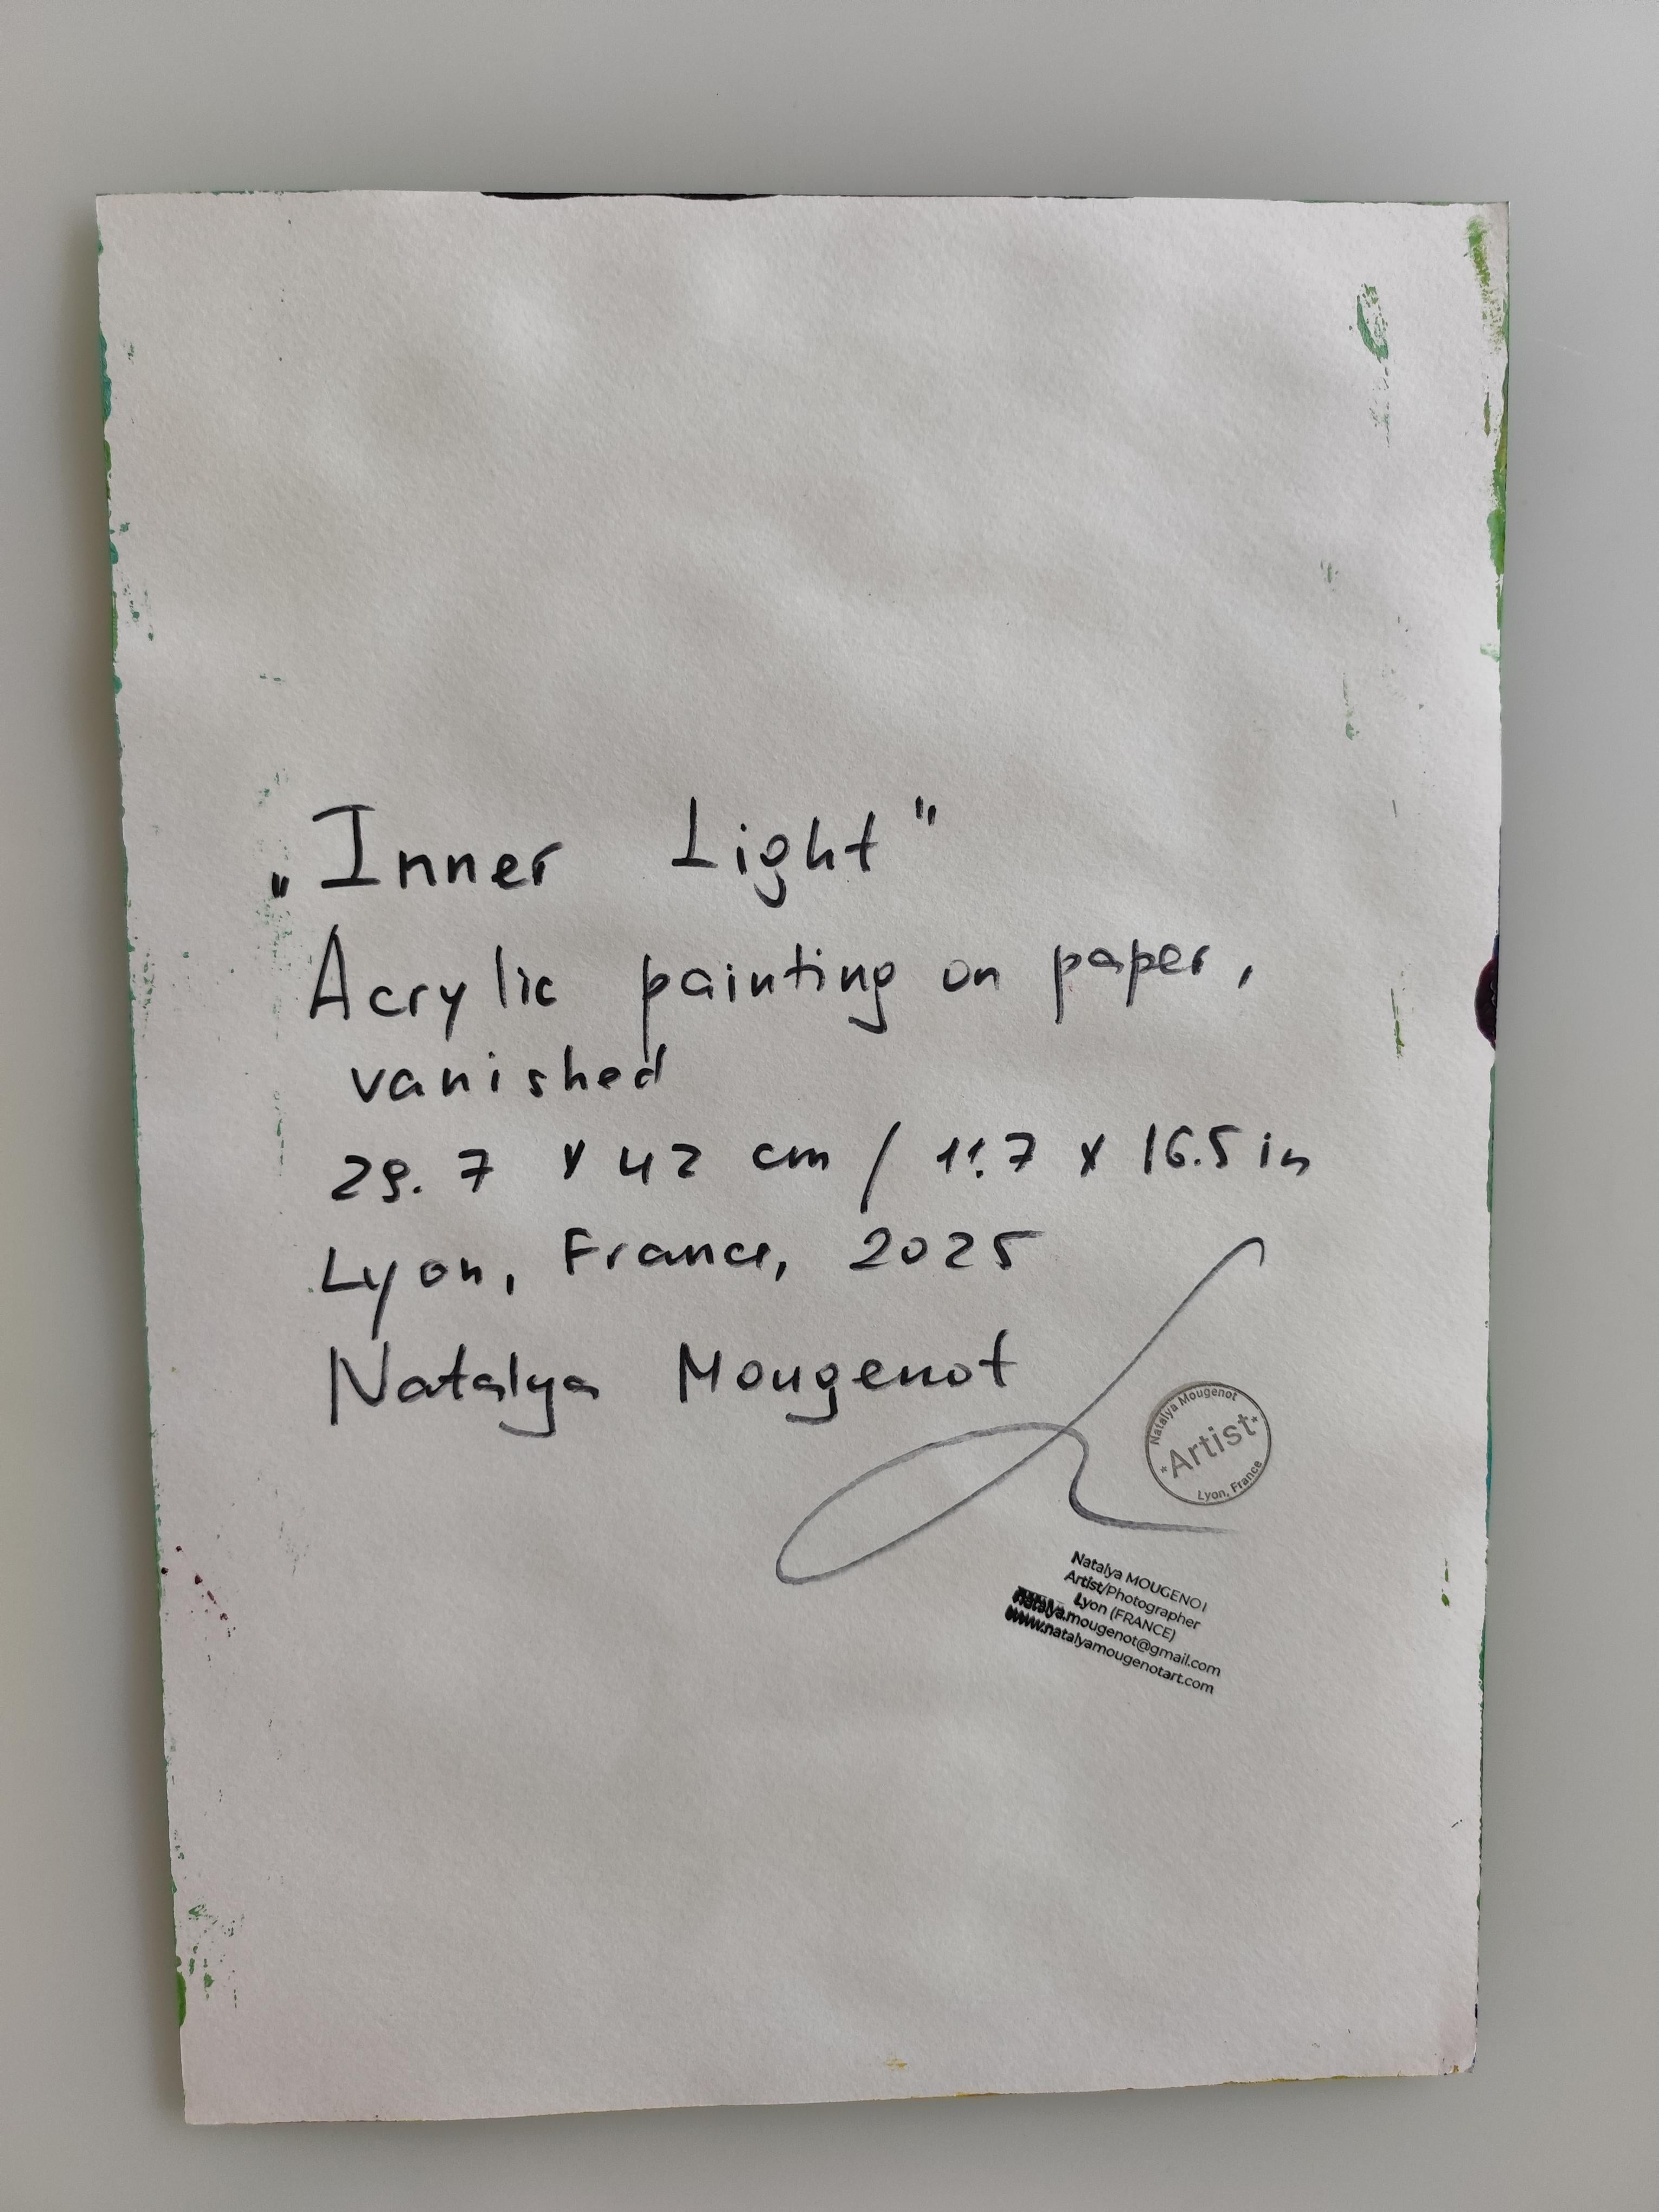 „Inner Light"
Acrylic painting on paper,
vanished
29.7 x 42 cm / 11.7 x 16.5 in
Lyon, France, 2025
Natalya Mougenot
Natalya Mougenot
*Artist*
Lyon, France
Natalya MOUGENOT
Artist/Photographer
Lyon (FRANCE)
natalya.mougenot@gmail.com
www.natalyamougenotart.com